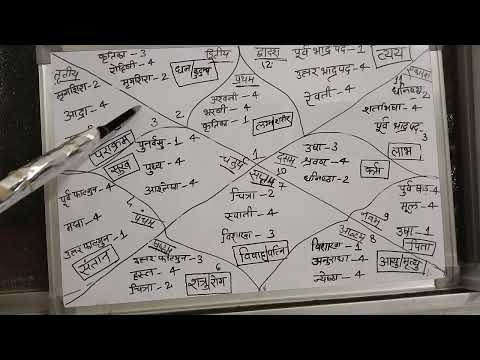 तृतीय
मृगशिरा-2
आद्रा-4
कृतिका-3
रोहिणी-4
मृगशिरा-2
द्वितीय
धन/कुटुम्ब
प्रथम
अश्वनी-4
भरणी-4
कृतिका-1
द्वादश
12
पूर्व भाद्रपद-1
उत्तर भाद्रपद-4
रेवती-4
व्यय
एकादश
11
धनिष्ठा-2
शतभिषा-4
पूर्व भाद्रपद-3
लाभ
3
2
पराक्रम
सुख
पुनर्वसु-1 4
पुष्य-4
आश्लेषा-4
चतुर्थ
1
दशम
10
उषा-3
श्रवण-4
धनिष्ठा-2
कर्म
सप्तम
7
चित्रा-2
स्वाती-4
विशाखा-3
विवाह/पत्नि
पूर्व फाल्गुन-4
मघा-4
उत्तर फाल्गुन-1
संतान
पंचम
उत्तर फाल्गुन-3
हस्त-4
चित्रा-2
6
शत्रु/रोग
नवम
9
मूल-4
उषा-1
पिता
अष्टम
8
विशाखा-1
अनुराधा-4
ज्येष्ठा-4
आयु/मृत्यु